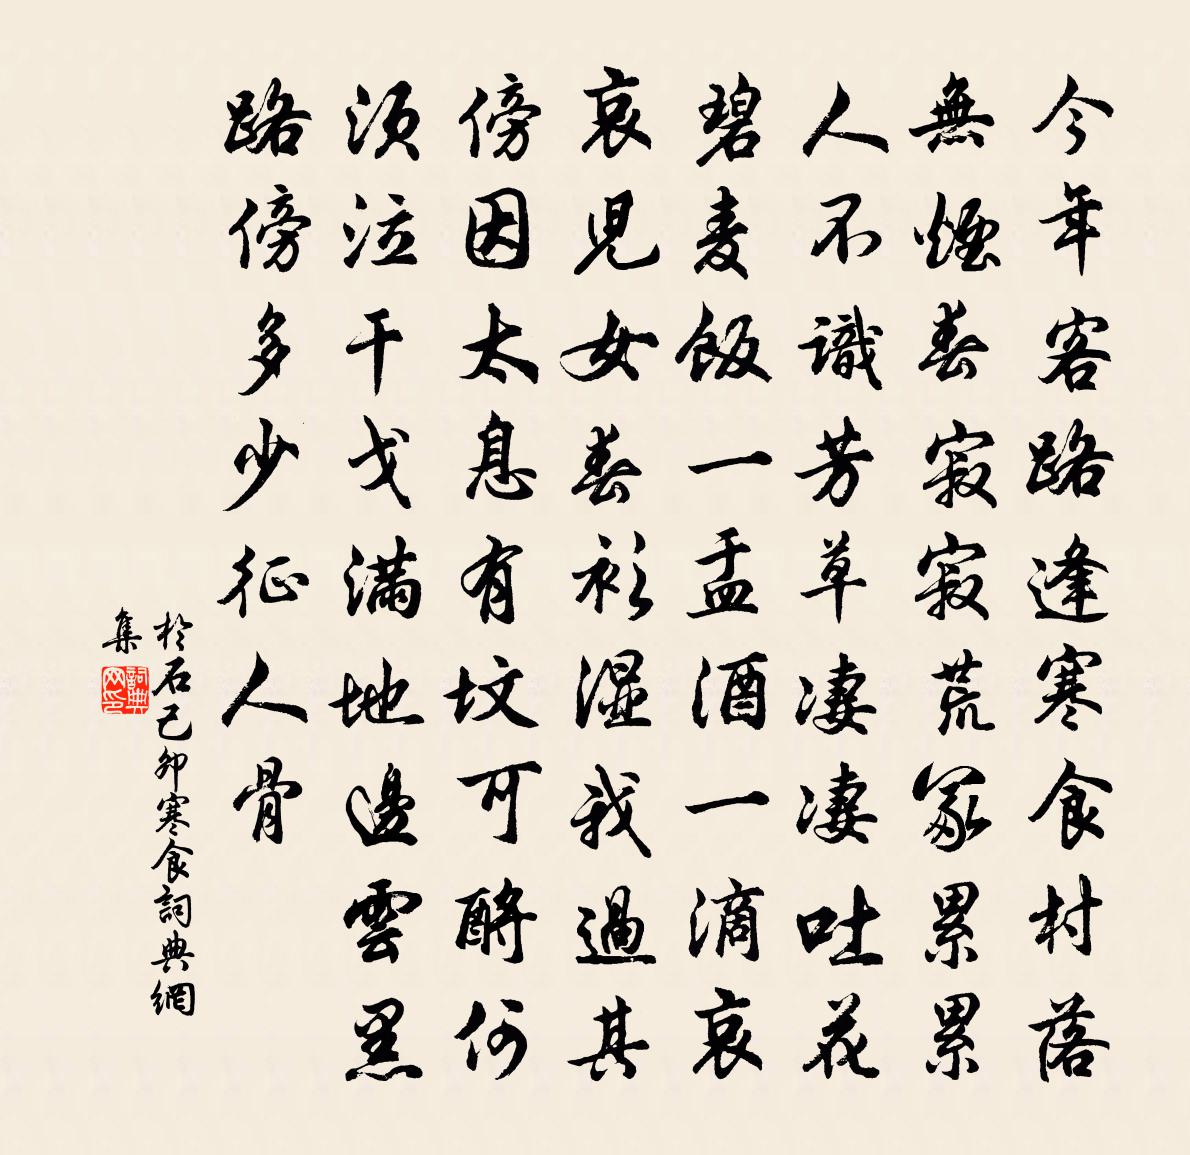 今年客路逢寒食村落
無煙春寂寂荒冢累累
人不識芳草凄凄吐花
碧麦飯一盂酒一滴哀
哀児女春衫湿我過其
傍因太息有坟可酹何
須泣干戈滿地邊雲黑
路傍多少征人骨
於石己卯寒食詞典網
集
詞典网印